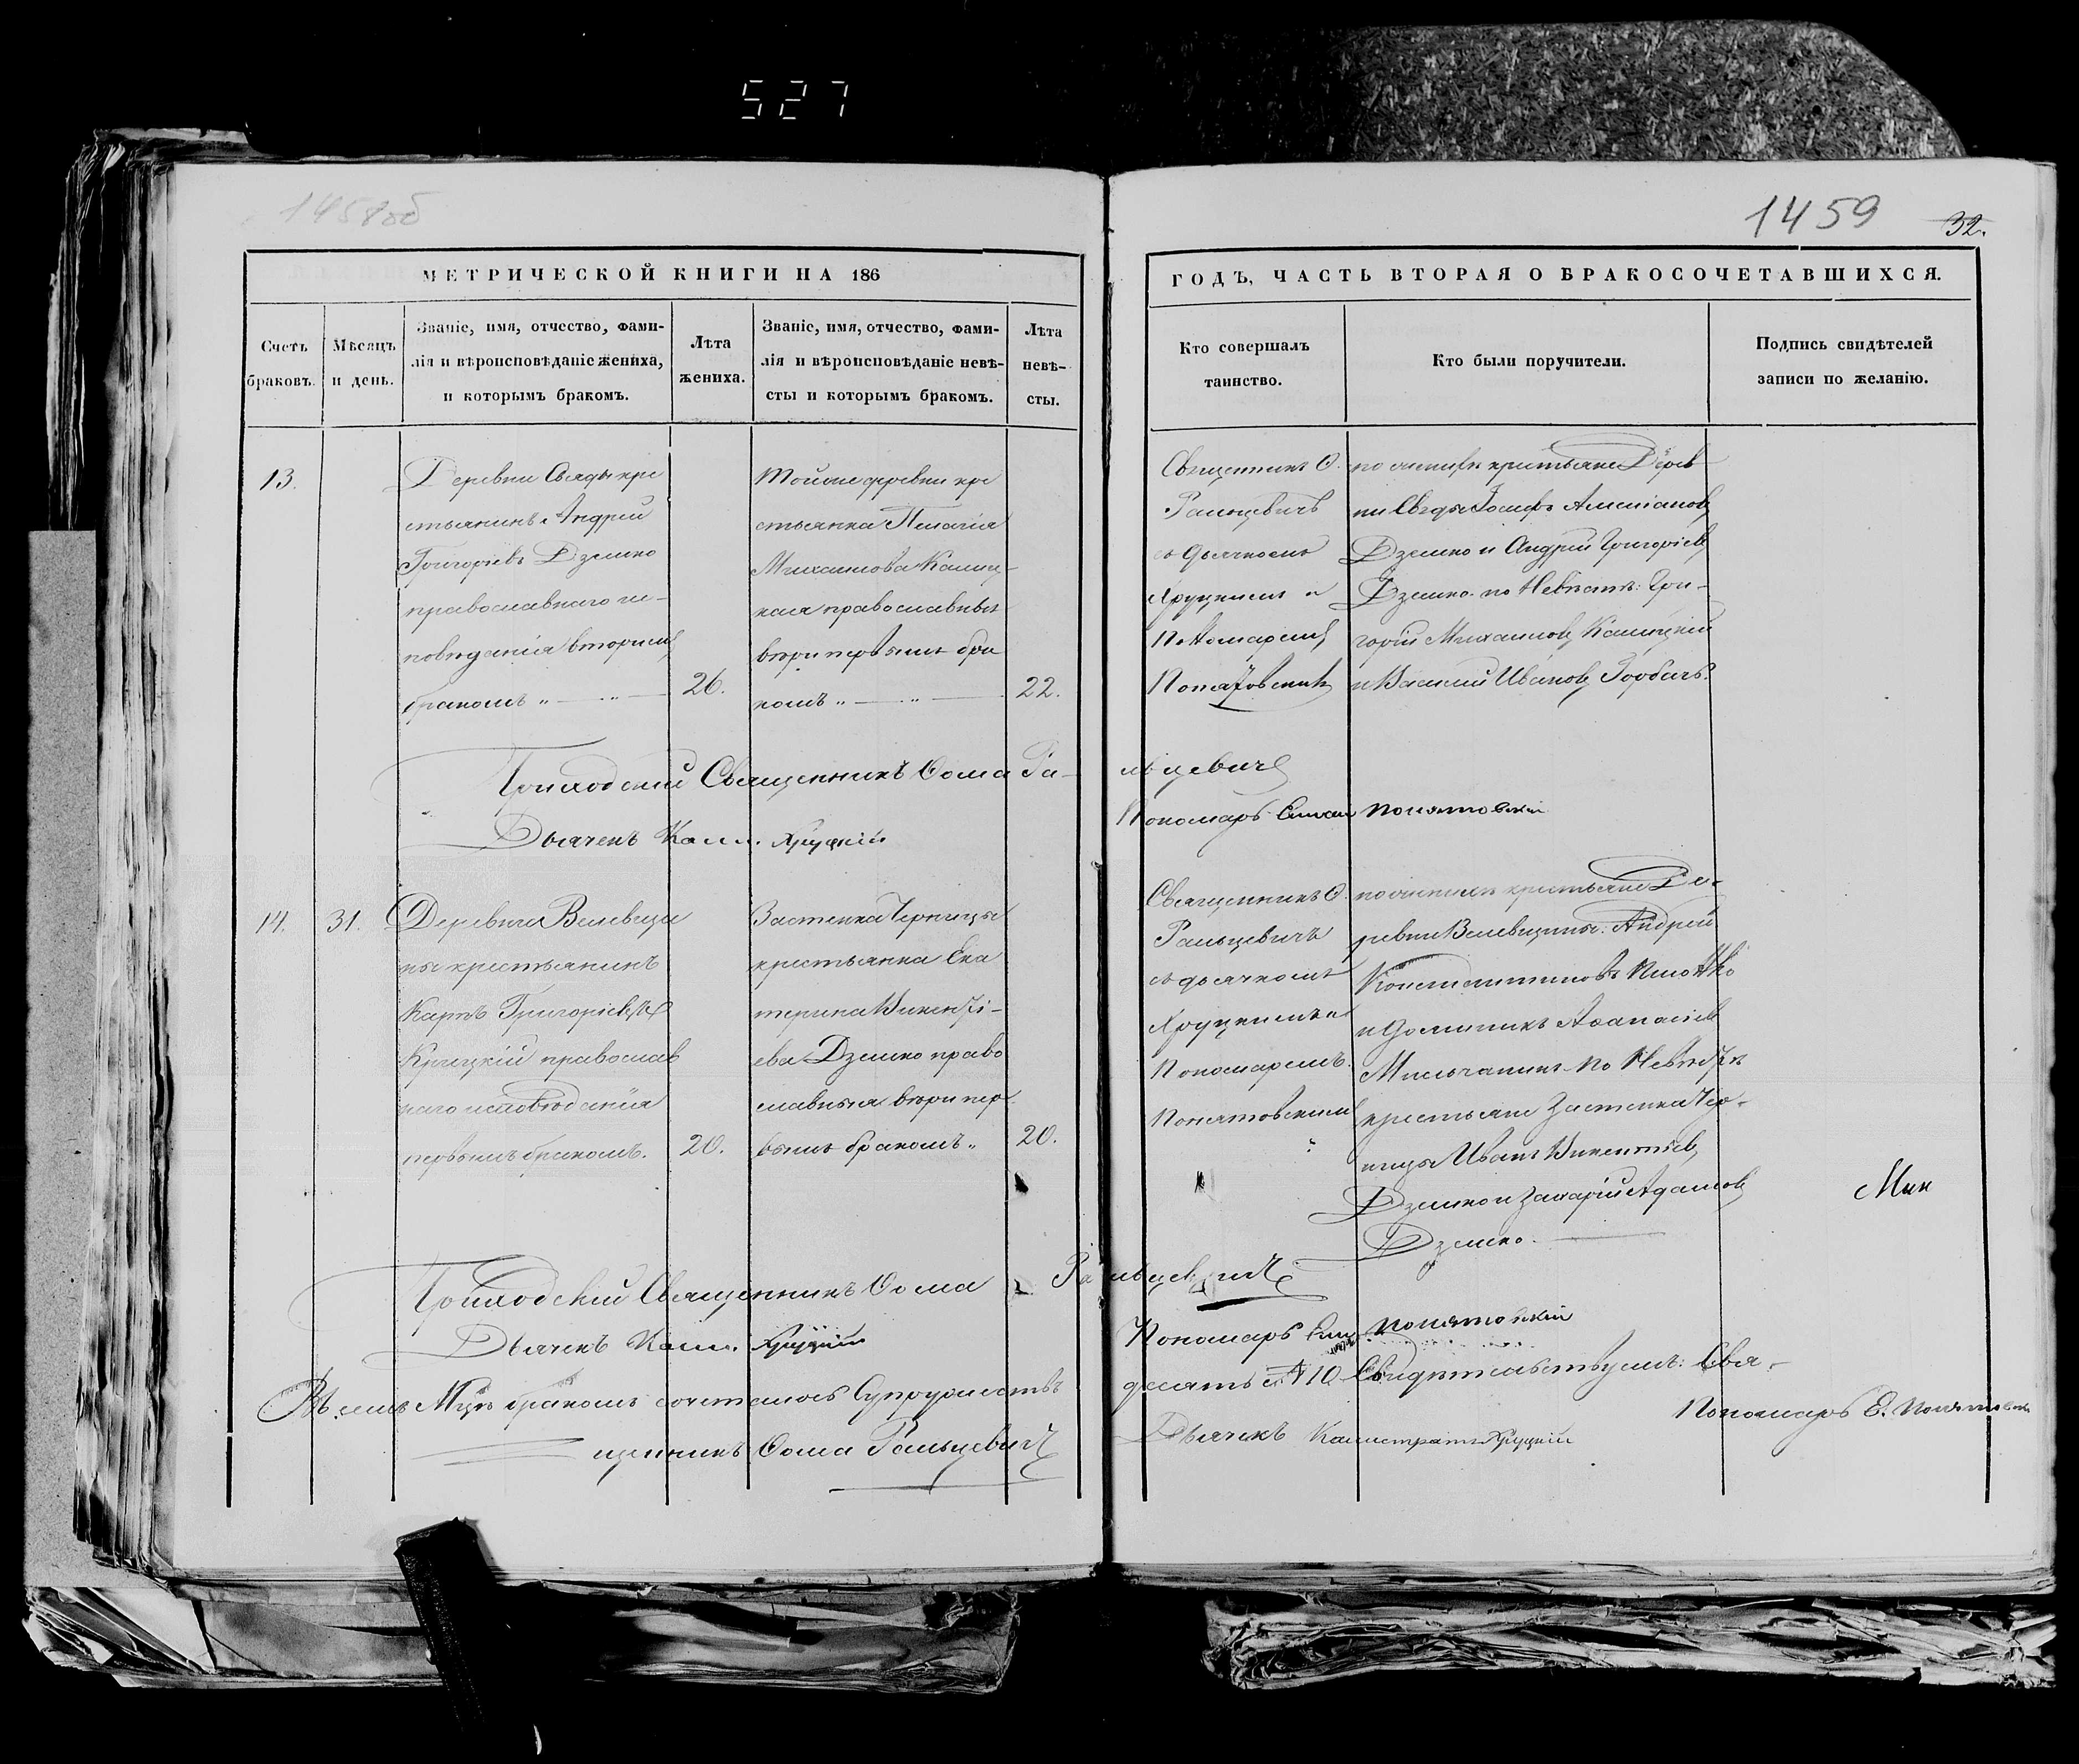 527
1458об
1459
32.
МЕТРИЧЕСКОЙ КНИГИ НА 186
ГОДЪ, ЧАСТЬ ВТОРАЯ О БРАКОСОЧЕТАВШИХСЯ.
Счетъ
браковъ.
Мѣсяцъ
и день.
Званіе, имя, отчество, фами-
лія и вѣроисповѣданіе жениха,
и которымъ бракомъ.
Лѣта
жениха.
Званіе, имя, отчество, фами-
лія и вѣроисповѣданіе невѣ-
сты и которымъ бракомъ.
Лѣта
невѣ-
сты.
Кто совершалъ
таинство.
Кто были поручители.
Подпись свидѣтелей
записи по желанію.
13.
Деревни Свяды кре
стьянинъ Андрей
Григорьевъ Дземко
православнаго ис-
повѣданія вторымъ
бракомъ
26.
Тойже деревни кре
стьянка Пелагія
Михаилова
православныя
вѣры первымъ бра
комъ
22.
Священникъ Ѳ.
Ральцевичъ
съ дьячкомъ
Хруцкимъ и
Пономаремъ
Понятовскимъ
по женихѣ крестьяне Дерев
ни Свяды Іосифъ
Дземко и Андрей Григорьевъ
Дземко по Невѣстѣ: Гри-
горій Михаиловъ
и Василій Ивановъ Горбачъ.
Приходскій Священникъ Ѳома Ра-
льцевичъ
Дьячекъ Калл. Хруцкій
Пономарь Понятовскій
14.
31.
Деревни Велевщи
ны крестьянинъ
Карпъ Григорьевъ
православ
наго исповѣданія
первымъ бракомъ.
20.
Застенка Черницы
крестьянка Ека
терина Викенті-
ева Дземко право
славныя вѣры пер
вымъ бракомъ
20.
Священникъ Ѳ.
Ральцевичъ
съ дьячкомъ
Хруцкимъ и
Пономаремъ
Понятовскимъ
по женихѣ крестьяне Де-
ревни Велевщины: Андрей
Константиновъ
и Доминикъ Аѳанасіевъ
Мильчанинъ по Невѣстѣ
крестьяне Застенка Чер-
ницы Иванъ Викентіевъ
Дземко и Захарій Адамовъ
Дземко.
Мин
Приходскій Священникъ Ѳома Ральцевичъ
Дьячекъ Калл. Хруцкій
Пономарь Понятовскій
Въ семъ Мцѣ бракомъ сочеталось Супружествъ
десять №10 Свидѣтельствуемъ: Свя-
щенникъ Ѳома Ральцевичъ
Дьячекъ Каллистратъ Хруцкій
Пономарь Е. Понятовскій